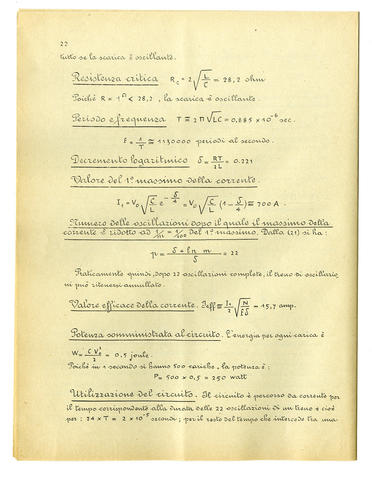 22
tutto se la scarica è oscillante.
Resistenza critica R_c = 2 √(L/C) = 28,2 ohm
Poichè R = 1^Ω < 28,2, la scarica è oscillante.
Periodo e frequenza T ≅ 2π√LC = 0,885 × 10⁻⁶ sec.
f = 1/T ≅ 1130000 periodi al secondo.
Decremento logaritmico δ = RT/2L = 0.221
Valore del 1° massimo della corrente.
I₁ = V₀ √(C/L) e^(-δ/4) = V₀ √(C/L) (1 - δ/4) ≅ 700 A.
Numero delle oscillazioni dopo il quale il massimo della
corrente è ridotto ad 1/m = 1/100 del 1° massimo. Dalla (21) si ha:
p = (δ + ln m)/δ = 22
Praticamente quindi, dopo 22 oscillazioni complete, il treno di oscillazio
ni può ritenersi annullato.
Valore efficace della corrente. Ieff = I₁/2 √(N/fδ) = 15,7 amp.
Potenza somministrata al circuito. L'energia per ogni carica è
W = C V₀²/2 = 0.5 joule.
Poichè in 1 secondo si hanno 500 cariche, la potenza è:
P = 500 × 0,5 = 250 watt
Utilizzazione del circuito. Il circuito è percorso da corrente per
il tempo corrispondente alla durata delle 22 oscillazioni di un treno e cioè
per: 24 × T = 2 × 10⁻⁵ secondi; per il resto del tempo che intercede tra una